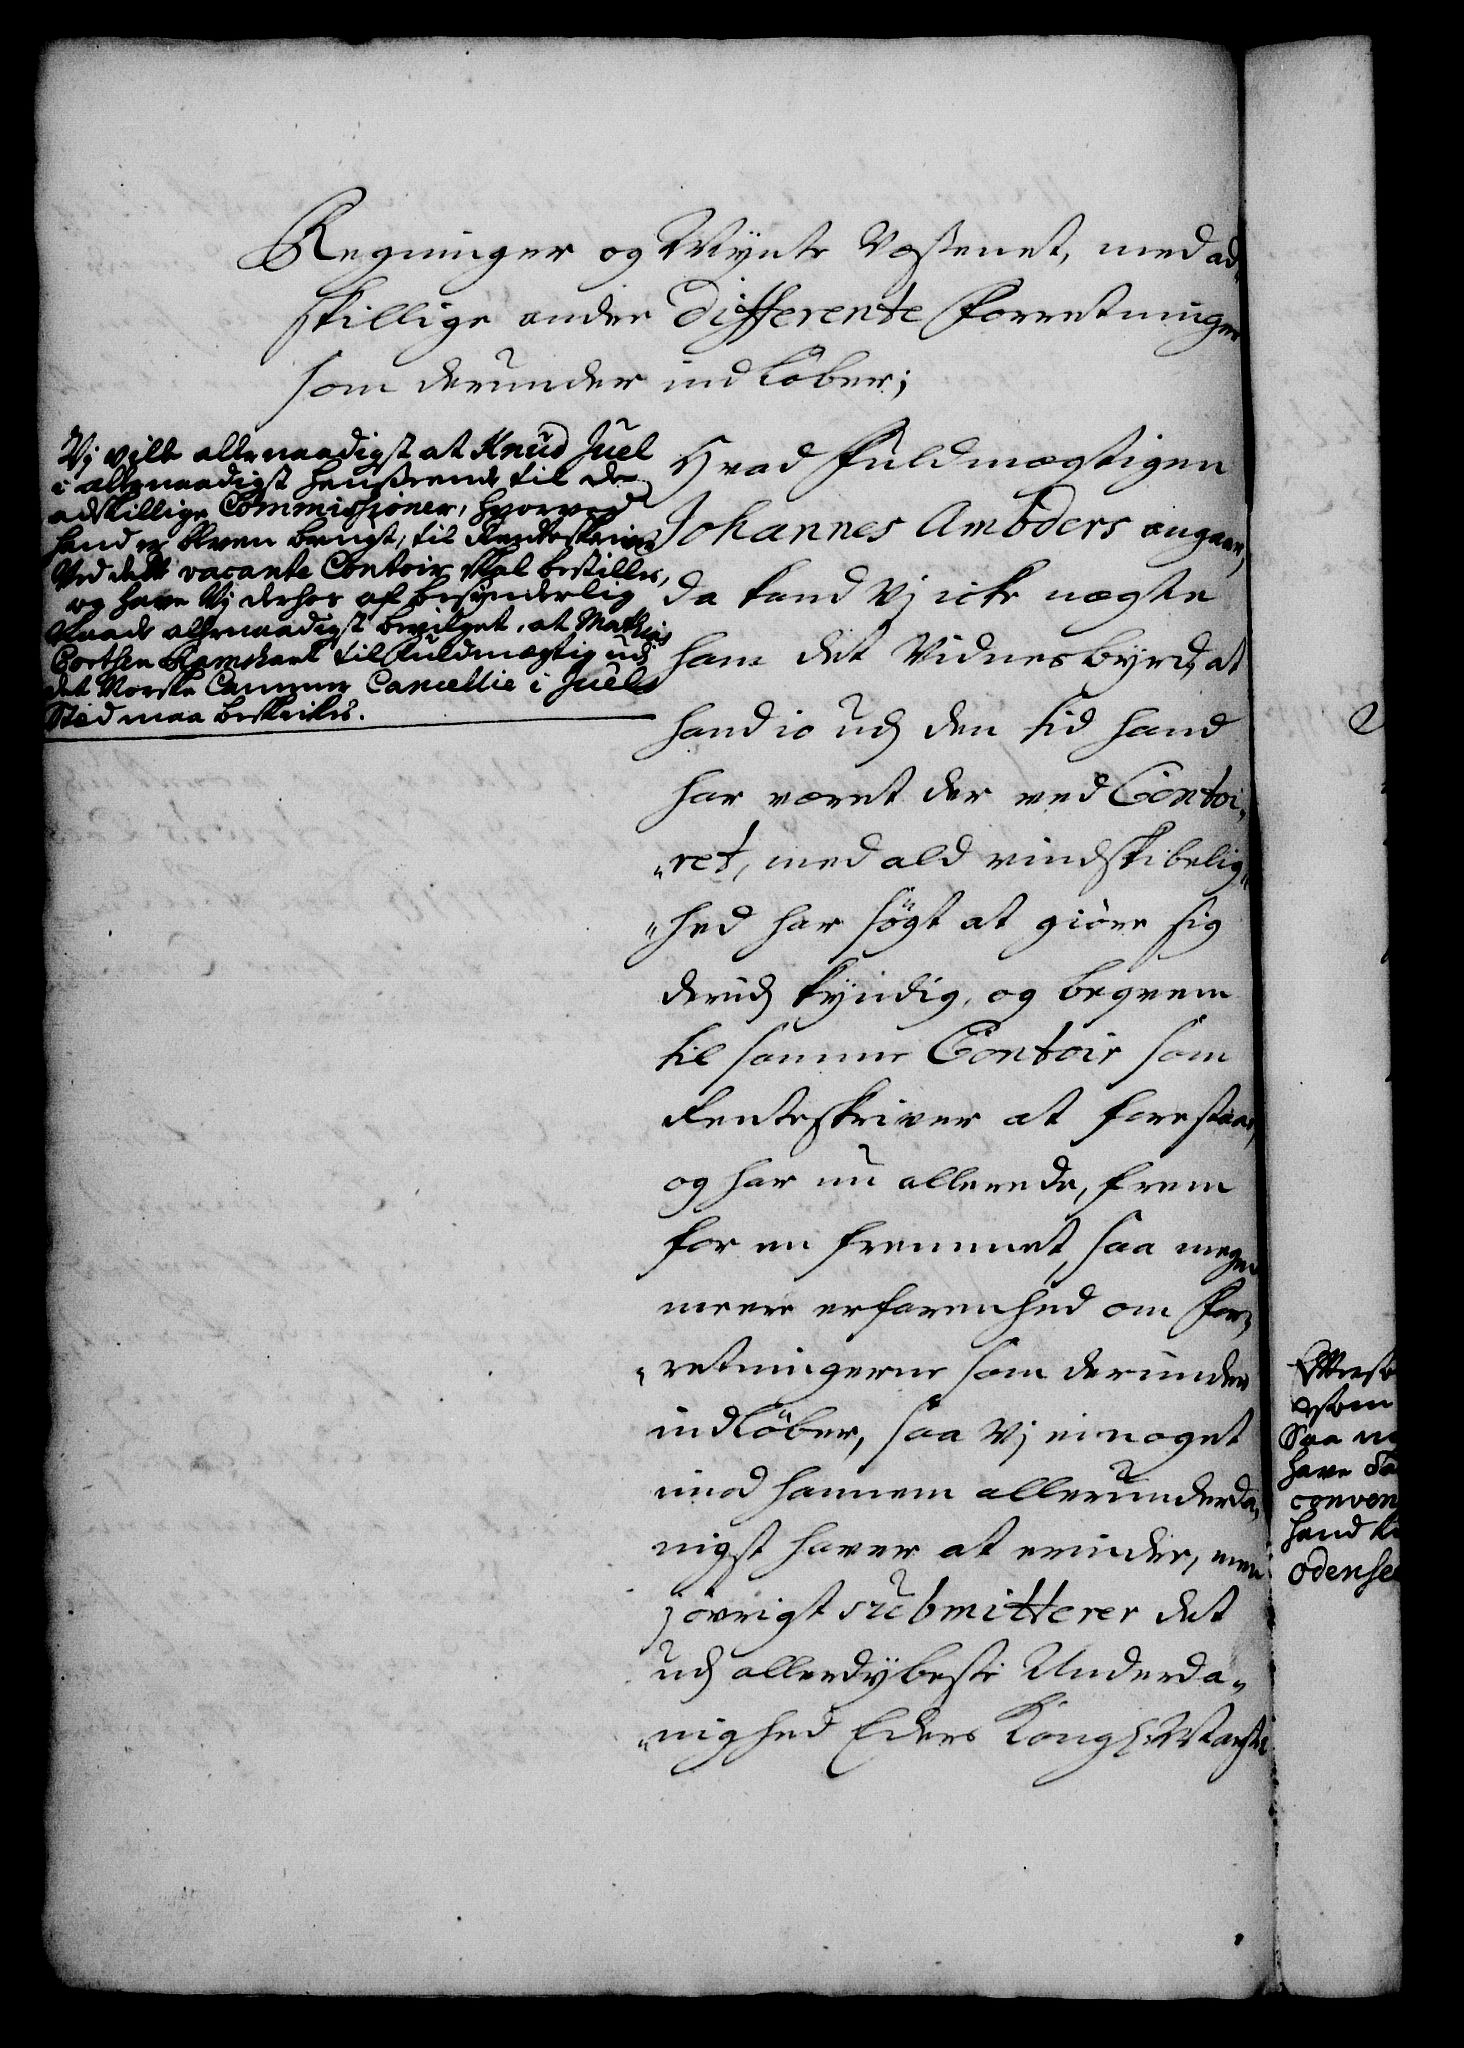 Regninger og Mynte Væsenet, med ad„
skillige andre differente Forretninger
som derunder indløber;
Vj ville allernaadigst at Knud Juel
i allernaadigst henseende til de
adskillige Commissioner, hvorved
hand er bleven brugt, til Renteskriver
Ved dette vacante Contoir skal bestilles,
og have Vj derhos af besynderlig
Naade allernaadigst bevilget, at Mathias
til Fuldmægtig udj
det Norske Cammer Cancellie i Juels
Sted maa beskikkes.
Hvad Fuldmægtigen
Johannes Amböders angaar,
da kand Vj icke nægte
ham det Vidnesbyrd, at
hand io udj den tid hand
har været der ved Contoi„
„ret, med ald vindskibelig„
„hed har søgt at giøre sig
derudj kyndig, og beqvem
til samme Contoir som
Renteskriver at forestaae,
og har nu allerede, frem
for en fremmet, saa meget
meere erfarenhed om For„
„retningerne som derunder
indløber, saa Vj ei noget
imod hannem allerunderda„
nigst haver at erindre, men
j øvrigt submitterer det
udj allerdybeste Underda„
„nighed Eders Kongl. Mayts
som
Saa
have
hand
odense